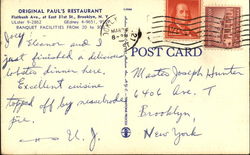 ORIGINAL PAUL'S RESTAURANT
Flatbush Ave., at East 31st St., Brooklyn, N. Y.
BANQUET FACILITIES FROM 20 TO
POST CARD
Joey
Eleanor and I
just finished a delicious
lobster dinner here.
Excellent cuisine
topped off by
pie.
Master Joseph Hunter
6406 Ave. T
Brooklyn,
New York